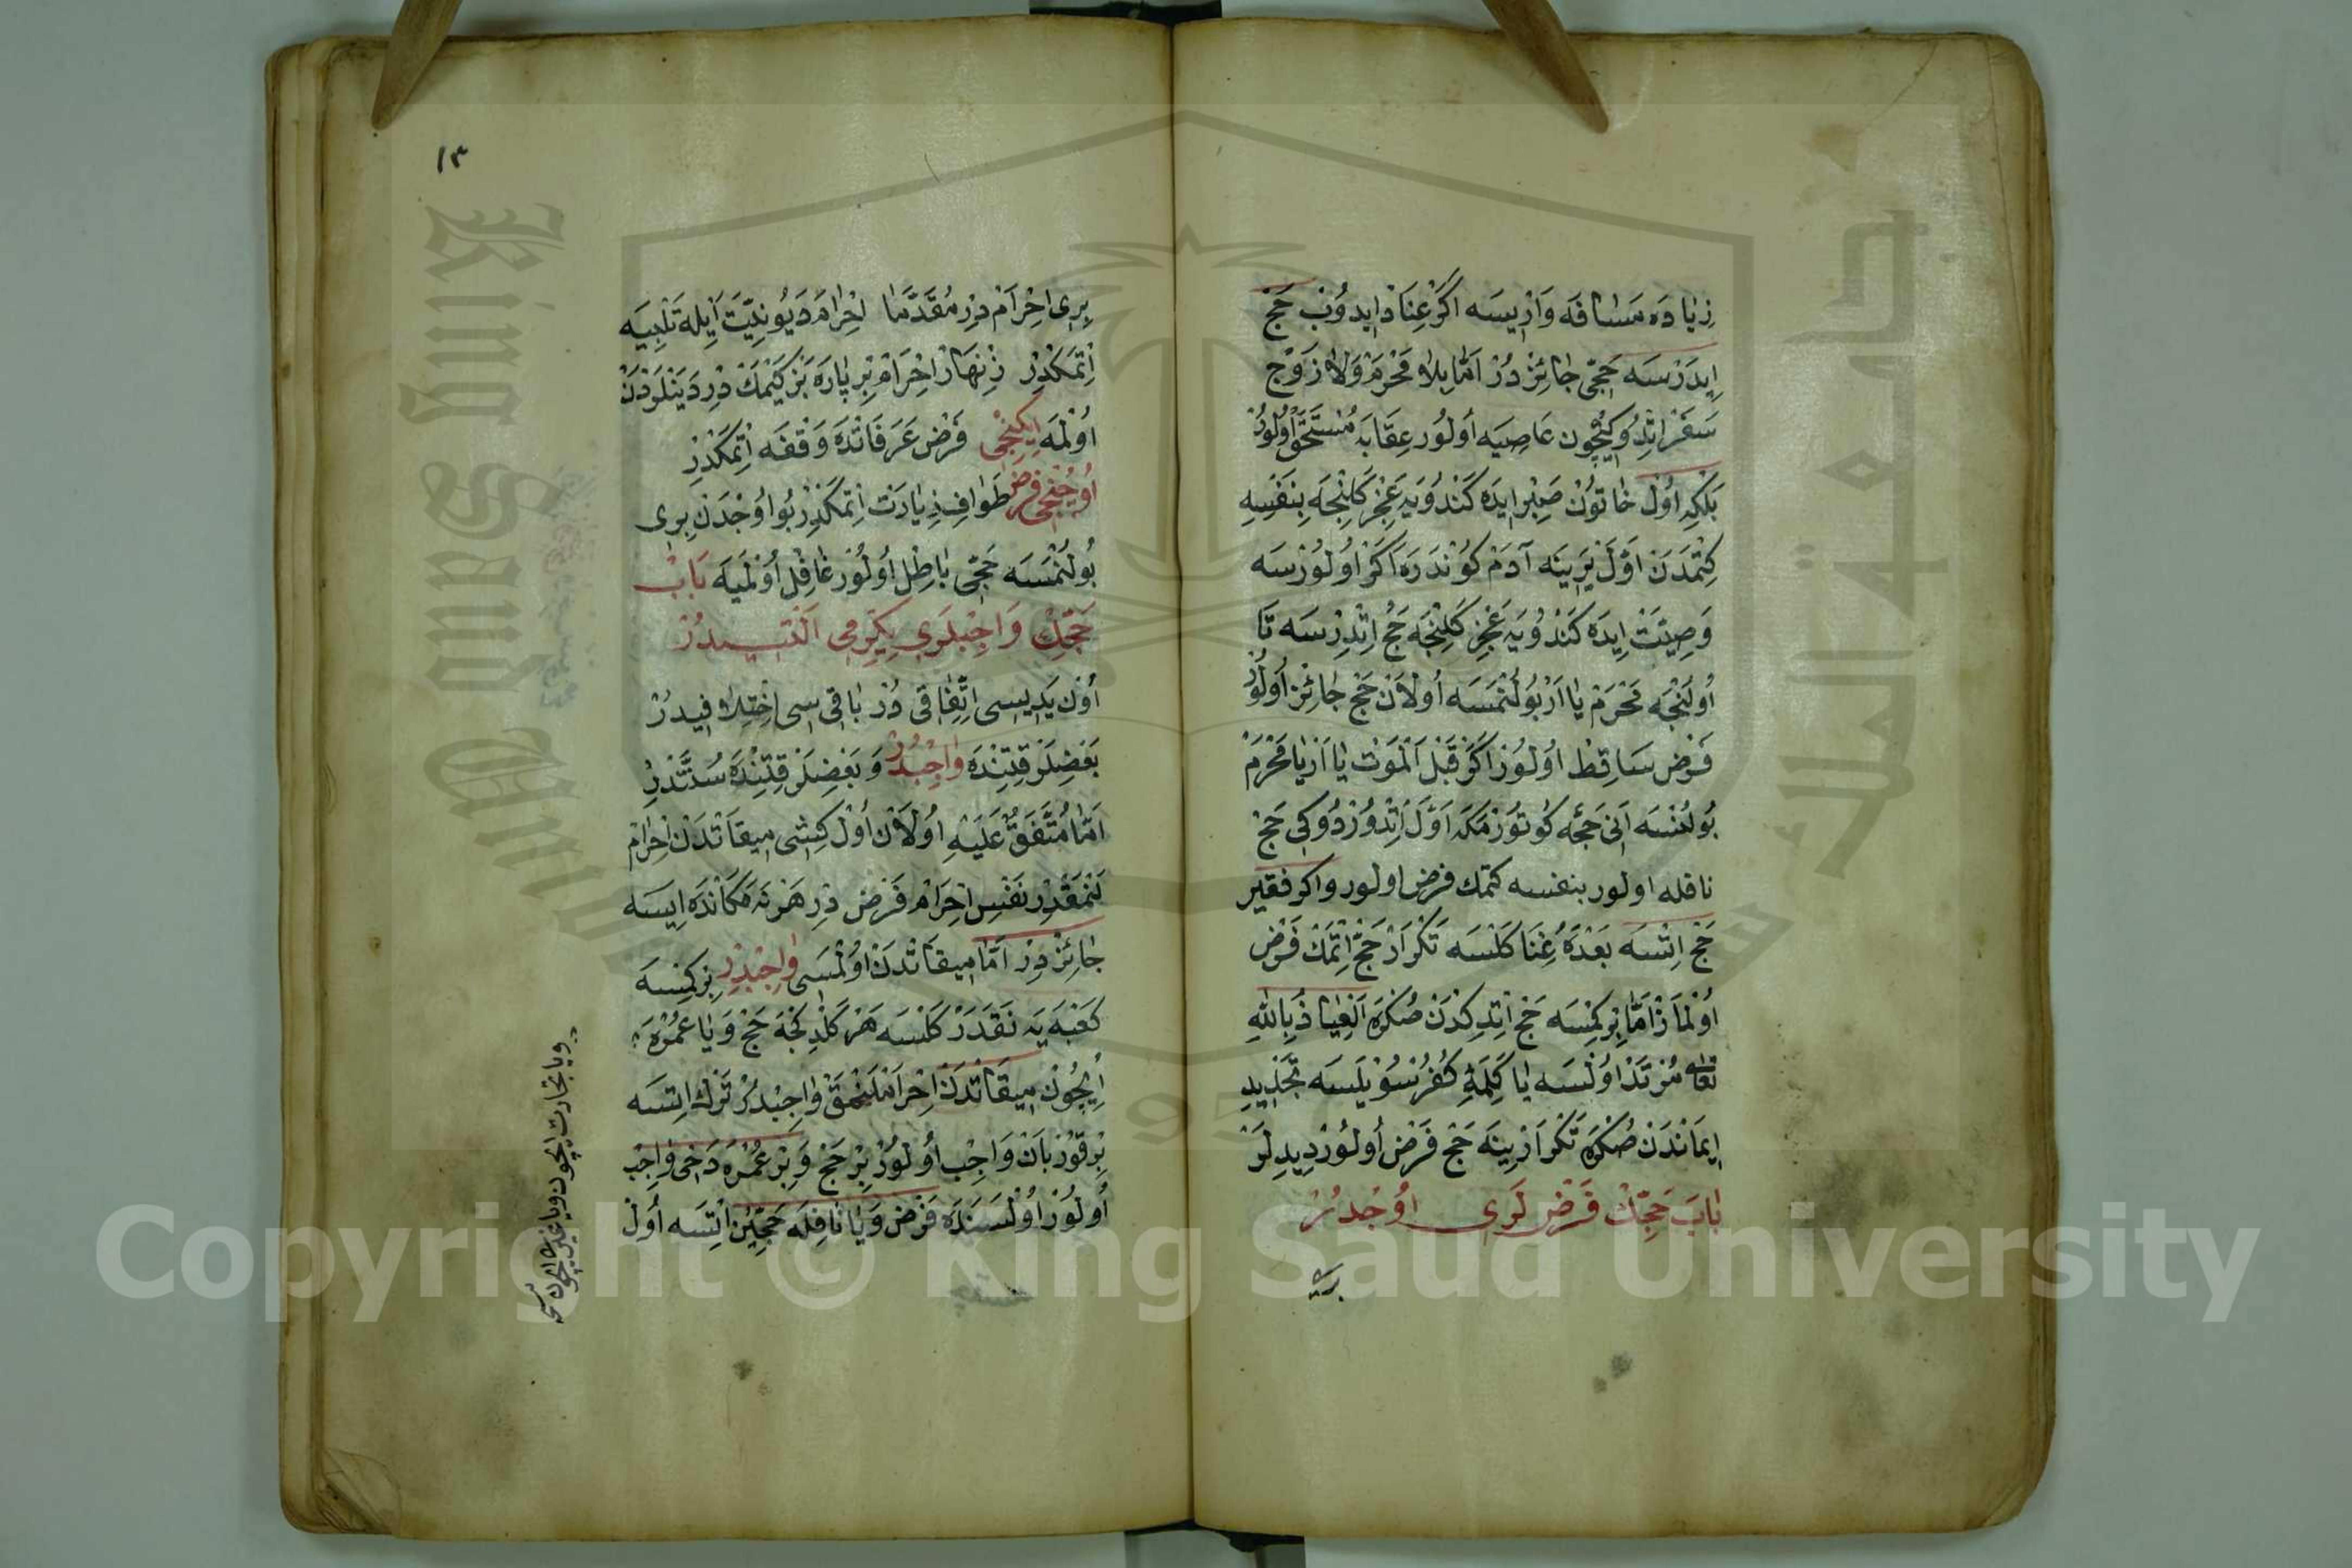 زِيَادَه مَسَافَه وَارِيسَه اَكَرْ عِنَادْ ايدوُبْ حَجْ
اِيدَرْسَه حَجّى جَائِزْ دُرْ اَمَّا بِلَا مَحْرَمْ وَلَا زَوْجْ
سَفَرْ اِتْدُوكِيچُون عَاصِيَه اُولُور عِقَابَه مُسْتَحَقْ اُولُورْ
بَلْكِه اُولْ خَاتُونْ صَبِرْ ايدَه كَنْدُويَه عَجْز كَلِنْجَه بِنَفْسِهِ
كِتْمَدَن اَوَّلْ يَرِينَه آدَمْ كُونْدَرَه اَكَرْ اُولُورْسَه
وَصِيَتْ اِيدَه كَنْدُويَه عَجْز كَلِنْجَه حَجْ اِتْدِرْسَه تَا
اُولَنْجَه مَحْرَمْ يَا اَرْ بُولُنْمَسَه اُولَانْ حَجْ جَائِزْ اُولُورْ
فَرْض سَاقِطْ اُولُورْ اَكَرْ قَبْلَ الْمَوْت يَا اَرْ يَا مَحْرَمْ
بُولُنْسَه اَنى حَجَّه كُوتُورْمَكَه اَوَّلْ اِتْدُورْدُوكى حَجْ
نافله اولور بنفسه كتمك فرض اولور واكر فقير
حَجْ اِتْسَه بَعْدَهُ غِنَا كَلْسَه تَكْرَارْ حَجْ اِتْمَكْ فَرْض
اُولْمَازْ اَمَّا بِرْ كِمْسَه حَجْ اِتْدِكْدَنْ صُكْرَه اَلْعِيَاذُ بِاللهِ
تعالى مُرْتَدْ اُولْسَه يَا كَلِمَةِ كُفُرْ سُويْلَسَه تَجْدِيدِ
اِيمَانْدَنْ صُكْرَه تَكْرَارْ يِنَه حَجْ فَرْضْ اُولُورْ دِيدِلَرْ
بَابْ حَجِّكْ فَرْض لَرى اوُجْدُرْ
برى
١٣
بِرى اِحْرَامْ دِرْ مُقَدَّمَا اِحْرَامْ دَيُو نِيَّتْ اَيله تَلْبِيَه
اِتْمَكْدِرْ زِنْهَارْ اِحْرَامْ بِرْ پَارَه بَزْ كَيْمَكْ دِرْ دَيَنْلَرْدَنْ
اُولْمَه اِيكِنْجى فَرْض عَرَفَاتْدَه وَقْفَه اِتْمَكْدِرْ
اُوچُنْجى فَرْض طَوَافِ زِيَارَتْ اِتْمَكْدِرْ بُو اُوچْدَن بِرى
بُولُنْمَسَه حَجّى بَاطِلْ اُولُورْ غَافِلْ اُولْمَيَه بَابْ
حَجِّكْ وَاجِبْلَرى يِكِرْمى اَلْتىدُرْ
اُونْ يَدِيسى اِتِّفَاقى دُرْ بَاقى سى اِخْتِلَافيدُرْ
بَعْضِلَرْ قِتِنْدَه وَاجِبْدُرْ وَ بَعْضِلَرْ قِتِنْدَه سُنَّتْدِرْ
اَمَّا مُتَّفَقٌ عَلَيْهِ اُولَانْ اُولْ كِشى مِيقَاتْدَنْ اِحْرَامْ
لَنْمَقْدِرْ نَفْسِ اِحْرَامْ فَرْض دِرْ هَرْ نَه مَكَانْدَه اِيسَه
جَائِزْ دِرْ اَمَّا مِيقَاتْدَنْ اُولْمَسى وَاجِبْدِرْ بِرْ كِمْسَه
كَعْبَه يَه نَقَدَرْ كَلْسَه هَرْ كَلْدِكْجَه حَجْ وَيَا عُمْرَه
اِيچُونْ مِيقَاتْدَنْ اِحْرَامْلَنْمَقْ وَاجِبْدُرْ تَرْك اِتْسَه
بِرْ قُورْبَانْ وَاجِب اُولُورْ بِرْ حَجْ وَبِرْ عُمْرَه دَخى وَاجِبْ
اُولُورْ اُولْسَنَدَه فَرْض وَيَا نَافِلَه حَجِّنْ اِتْسَه اُولْ
ويا تجارت ايچون ويا غيرى ايچون